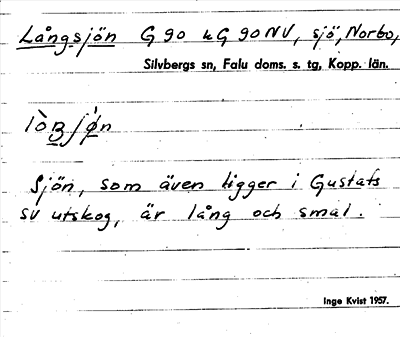 Långsjön G 90 k G 90 NV, sjö, Norbo,
Silvbergs sn, Falu doms. s. tg, Kopp. län.
Sjön, som även ligger i Gustafs
SV utskog, är lång och smal.
Inge Kvist 1957.